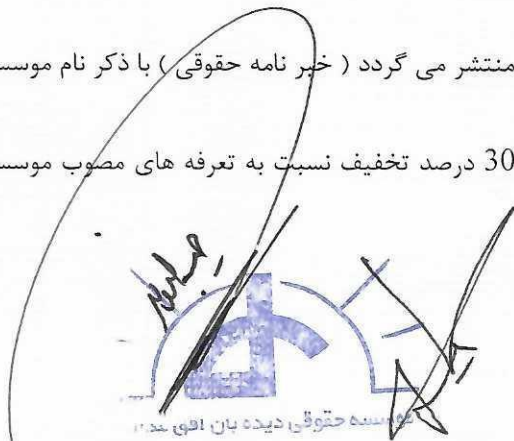 منتشر می گردد ( خبر نامه حقوقی ) با ذکر نام موسس
30 درصد تخفیف نسبت به تعرفه های مصوب موسس
موسسه حقوقی دیده بان افق